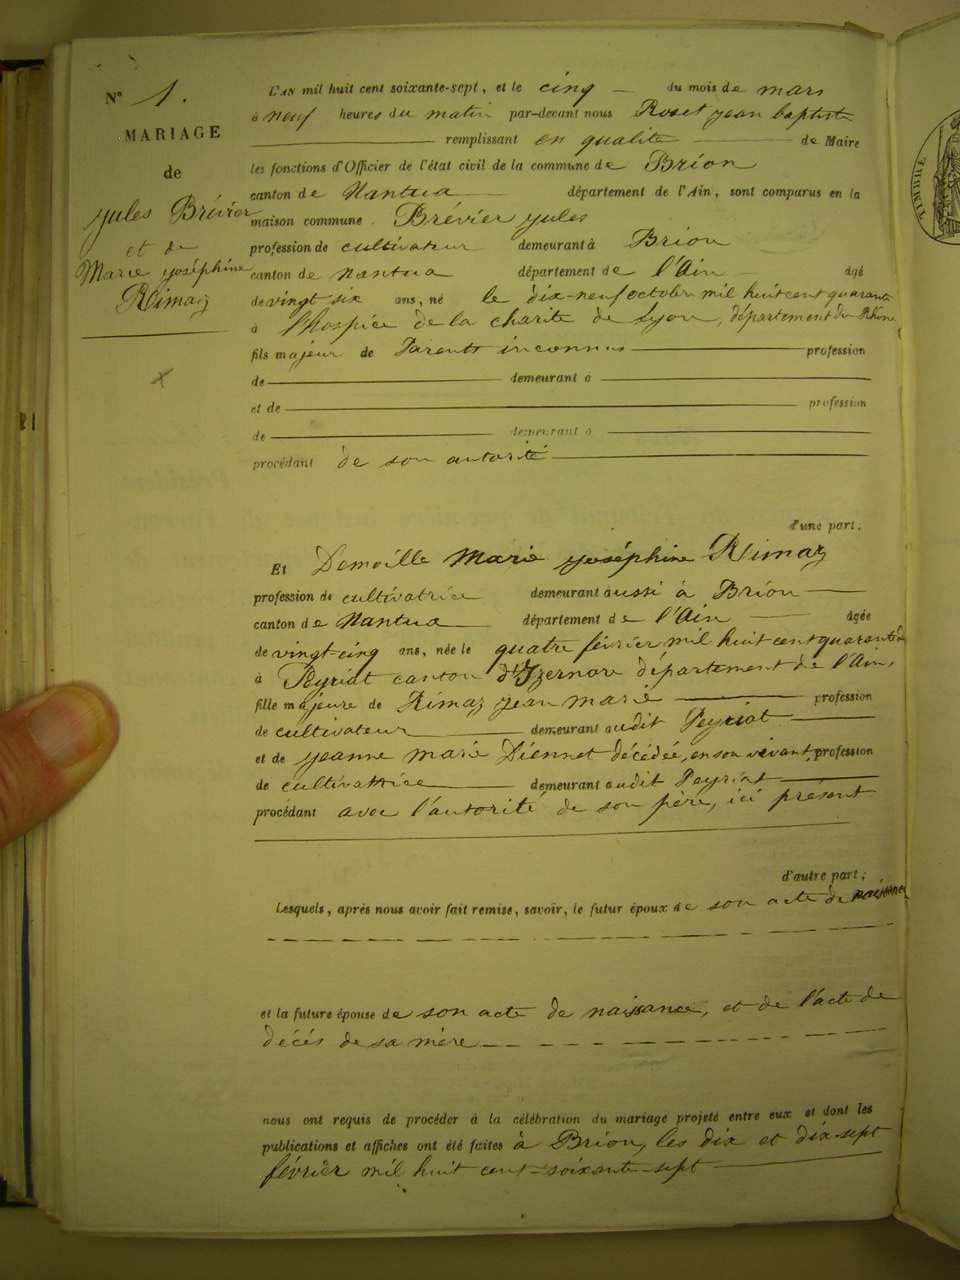 N° 1.
MARIAGE
de
Jules Brévier
et de
Marie Joséphine
Rimaz
L'AN mil huit cent soixante-sept, et le cinq du mois de mars
à neuf heures du matin par-devant nous Roset Jean baptiste
remplissant en qualité de Maire
les fonctions d'Officier de l'état civil de la commune de Brion
canton de Nantua département de l'Ain, sont comparus en la
maison commune. Brévier Jules
profession de cultivateur demeurant à Brion
canton de Nantua département de l'Ain âgé
de vingt six ans, né le dix-neuf octobre mil huit cent quarante
à l'hospice de la charité de Lyon, département du Rhône
fils majeur de Parents inconnus profession
de demeurant à
et de profession
de demeurant à
procédant de son autorité
d'une part;
Et Demoille Marie Joséphine Rimaz
profession de cultivatrice demeurant aussi à Brion
canton de Nantua département de l'Ain âgée
de vingt-cinq ans, née le quatre février mil huit cent quarante
à Peyriat canton d'Izernore département de l'Ain,
fille majeure de Rimaz Jean marie profession
de cultivateur demeurant audit Peyriat
et de Jeanne marie Diennet décédée, en son vivant, profession
de cultivatrice demeurant audit Peyriat
procédant avec l'autorité de son père, ici présent
d'autre part;
Lesquels, après nous avoir fait remise, savoir, le futur époux de son acte de naissance
et la future épouse de son acte de naissance, et de l'acte de
décès de sa mère
nous ont requis de procéder à la célébration du mariage projeté entre eux et dont les
publications et affiches ont été faites à Brion, les dix et dix-sept
février mil huit cent soixante-sept
TIMBRE